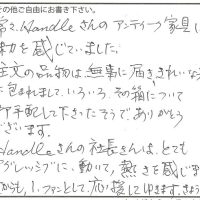 その他ご自由にお書き下さい。
常々、Handleさんのアンティーク家具に
魅力を感じていました。
注文の品物は、無事に届ききれいな
に包まれまして、いろいろ、その箱について
手配して下さったそうでありがとう
ございます。
Handleさんの社長さんは、とても
アグレッシブに、動いて、熱さを感じます
から、1、ファンとして、応援しております。